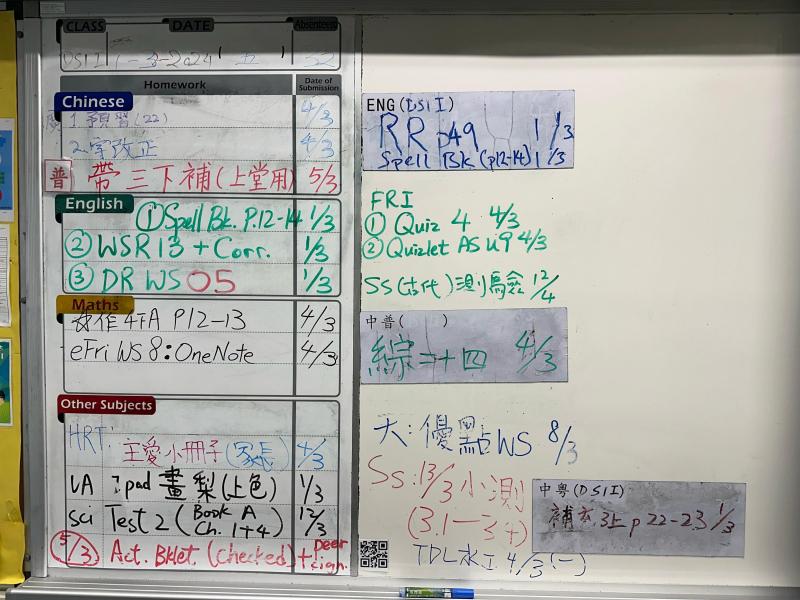 CLASS DATE Absentees
DSII 1-3-2024 五 32
Homework Date of Submission
Chinese
1 預習(22) 4/3
2. 字改正 4/3
普 帶三下補(上堂用) 5/3
English
① Spell Bk. P.12-14 1/3
② WSR13 + Corr. 1/3
③ DR WS 05 1/3
Maths
作4下A P12-13 4/3
eFri WS 8: OneNote 4/3
Other Subjects
HRT: 主愛小冊子(家長) 4/3
VA ipad 畫梨(上色) 1/3
Sci Test 2 (Book A Ch. 1+4) 12/3
5/3 Act. Bklet (checked) + peer sign.
ENG (DSI I)
RR p49 1/3
Spell Bk (p12-14) 1/3
FRI
① Quiz 4 4/3
② Quizlet AS u9 4/3
SS(古代)測驗 12/4
中普( )
綜二十四 4/3
大: 優點WS 8/3
Ss: 13/3 小測
(3.1-3.4)
中粵(DSI I)
補充3上 p22-23 1/3
TDL水I 4/3 (一)